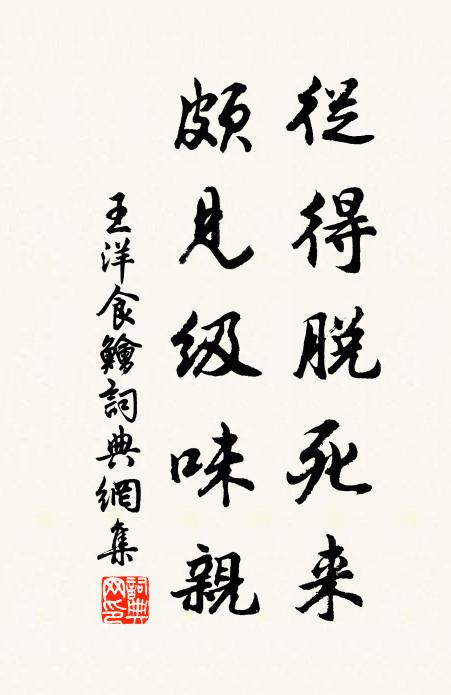 從得脱死来
頗見級味親
王洋食鱠詞典網集
詞典網印